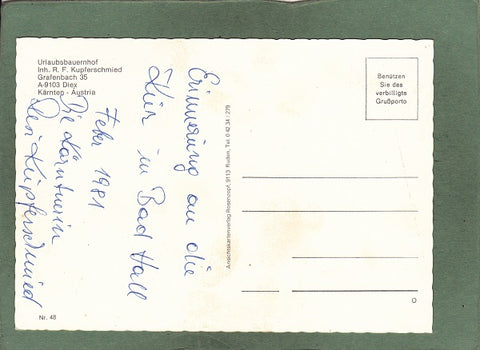 Urlaubsbauernhof
Inh. R. F. Kupferschmied
Grafenbach 35
A-9103 Diex
Kärnten - Austria
Erinnerung an die
Kur in Bad Hall
Feber 1981
Die Kärntnerin
Resi Kupferschmied
Ansichtskartenverlag Rosenzopf, 9113 Ruden, Tel. 0 42 34 / 279
Benützen
Sie das
verbilligte
Grußporto
Nr. 48